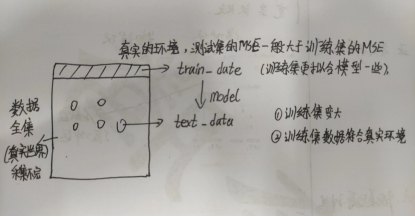 真实的环境，测试集的MSE一般大于训练集的MSE
train_date (训练集更拟合模型一些)
model
数据
全集
(真实世界)
采集不完
text_data
①训练集变大
②训练集数据符合真实环境